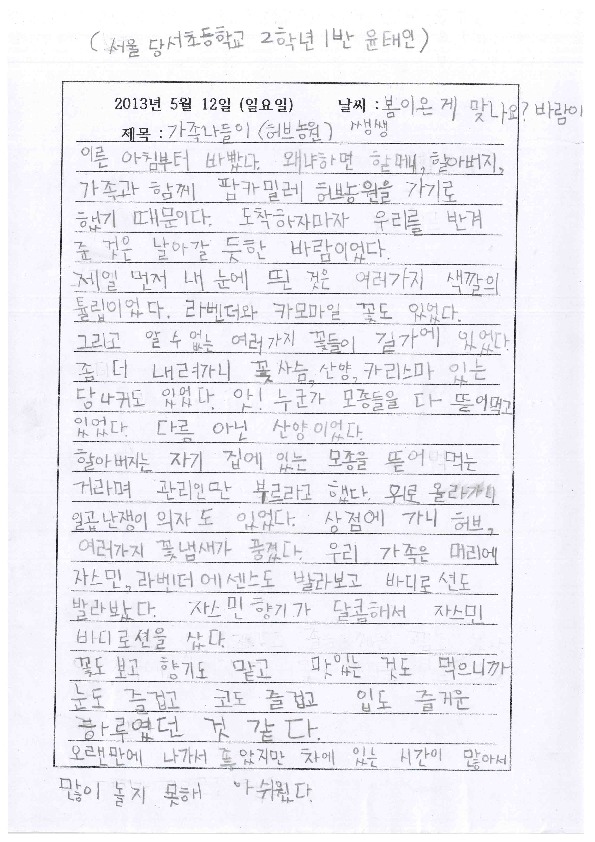 (서울 당서초등학교 2학년 1반 윤태인)
2013년 5월 12일 (일요일) 날씨 : 봄이온 게 맞나요? 바람이
제목 : 가족나들이 (허브농원) 쌩쌩
이른 아침부터 바빴다. 왜냐하면 할머니, 할아버지,
가족과 함께 팜카밀레 허브농원을 가기로
했기 때문이다. 도착하자마자 우리를 반겨
준 것은 날아갈 듯한 바람이었다.
제일 먼저 내 눈에 띈 것은 여러가지 색깔의
튤립이었다. 라벤더와 카모마일 꽃도 있었다.
그리고 알 수 없는 여러가지 꽃들이 길가에 있었다.
좀 더 내려가니 꽃사슴, 산양, 카리스마 있는
당나귀도 있었다. 앗! 누군가 모종들을 다 뜯어먹고
있었다. 다름 아닌 산양이었다.
할아버지는 자기 집에 있는 모종을 뜯어 먹는
거라며 관리인만 부르라고 했다. 위로 올라가니
일곱난쟁이 의자도 있었다. 상점에 가니 허브,
여러가지 꽃냄새가 풍겼다. 우리 가족은 머리에
자스민, 라벤더에센스도 발라보고 바디로션도
발라봤다. 자스민향기가 달콤해서 자스민
바디로션을 샀다.
꽃도 보고 향기도 맡고 맛있는 것도 먹으니까
눈도 즐겁고 코도 즐겁고 입도 즐거운
하루였던 것 같다.
오랜만에 나가서 좋았지만 차에 있는 시간이 많아서
많이 놀지 못해 아쉬웠다.